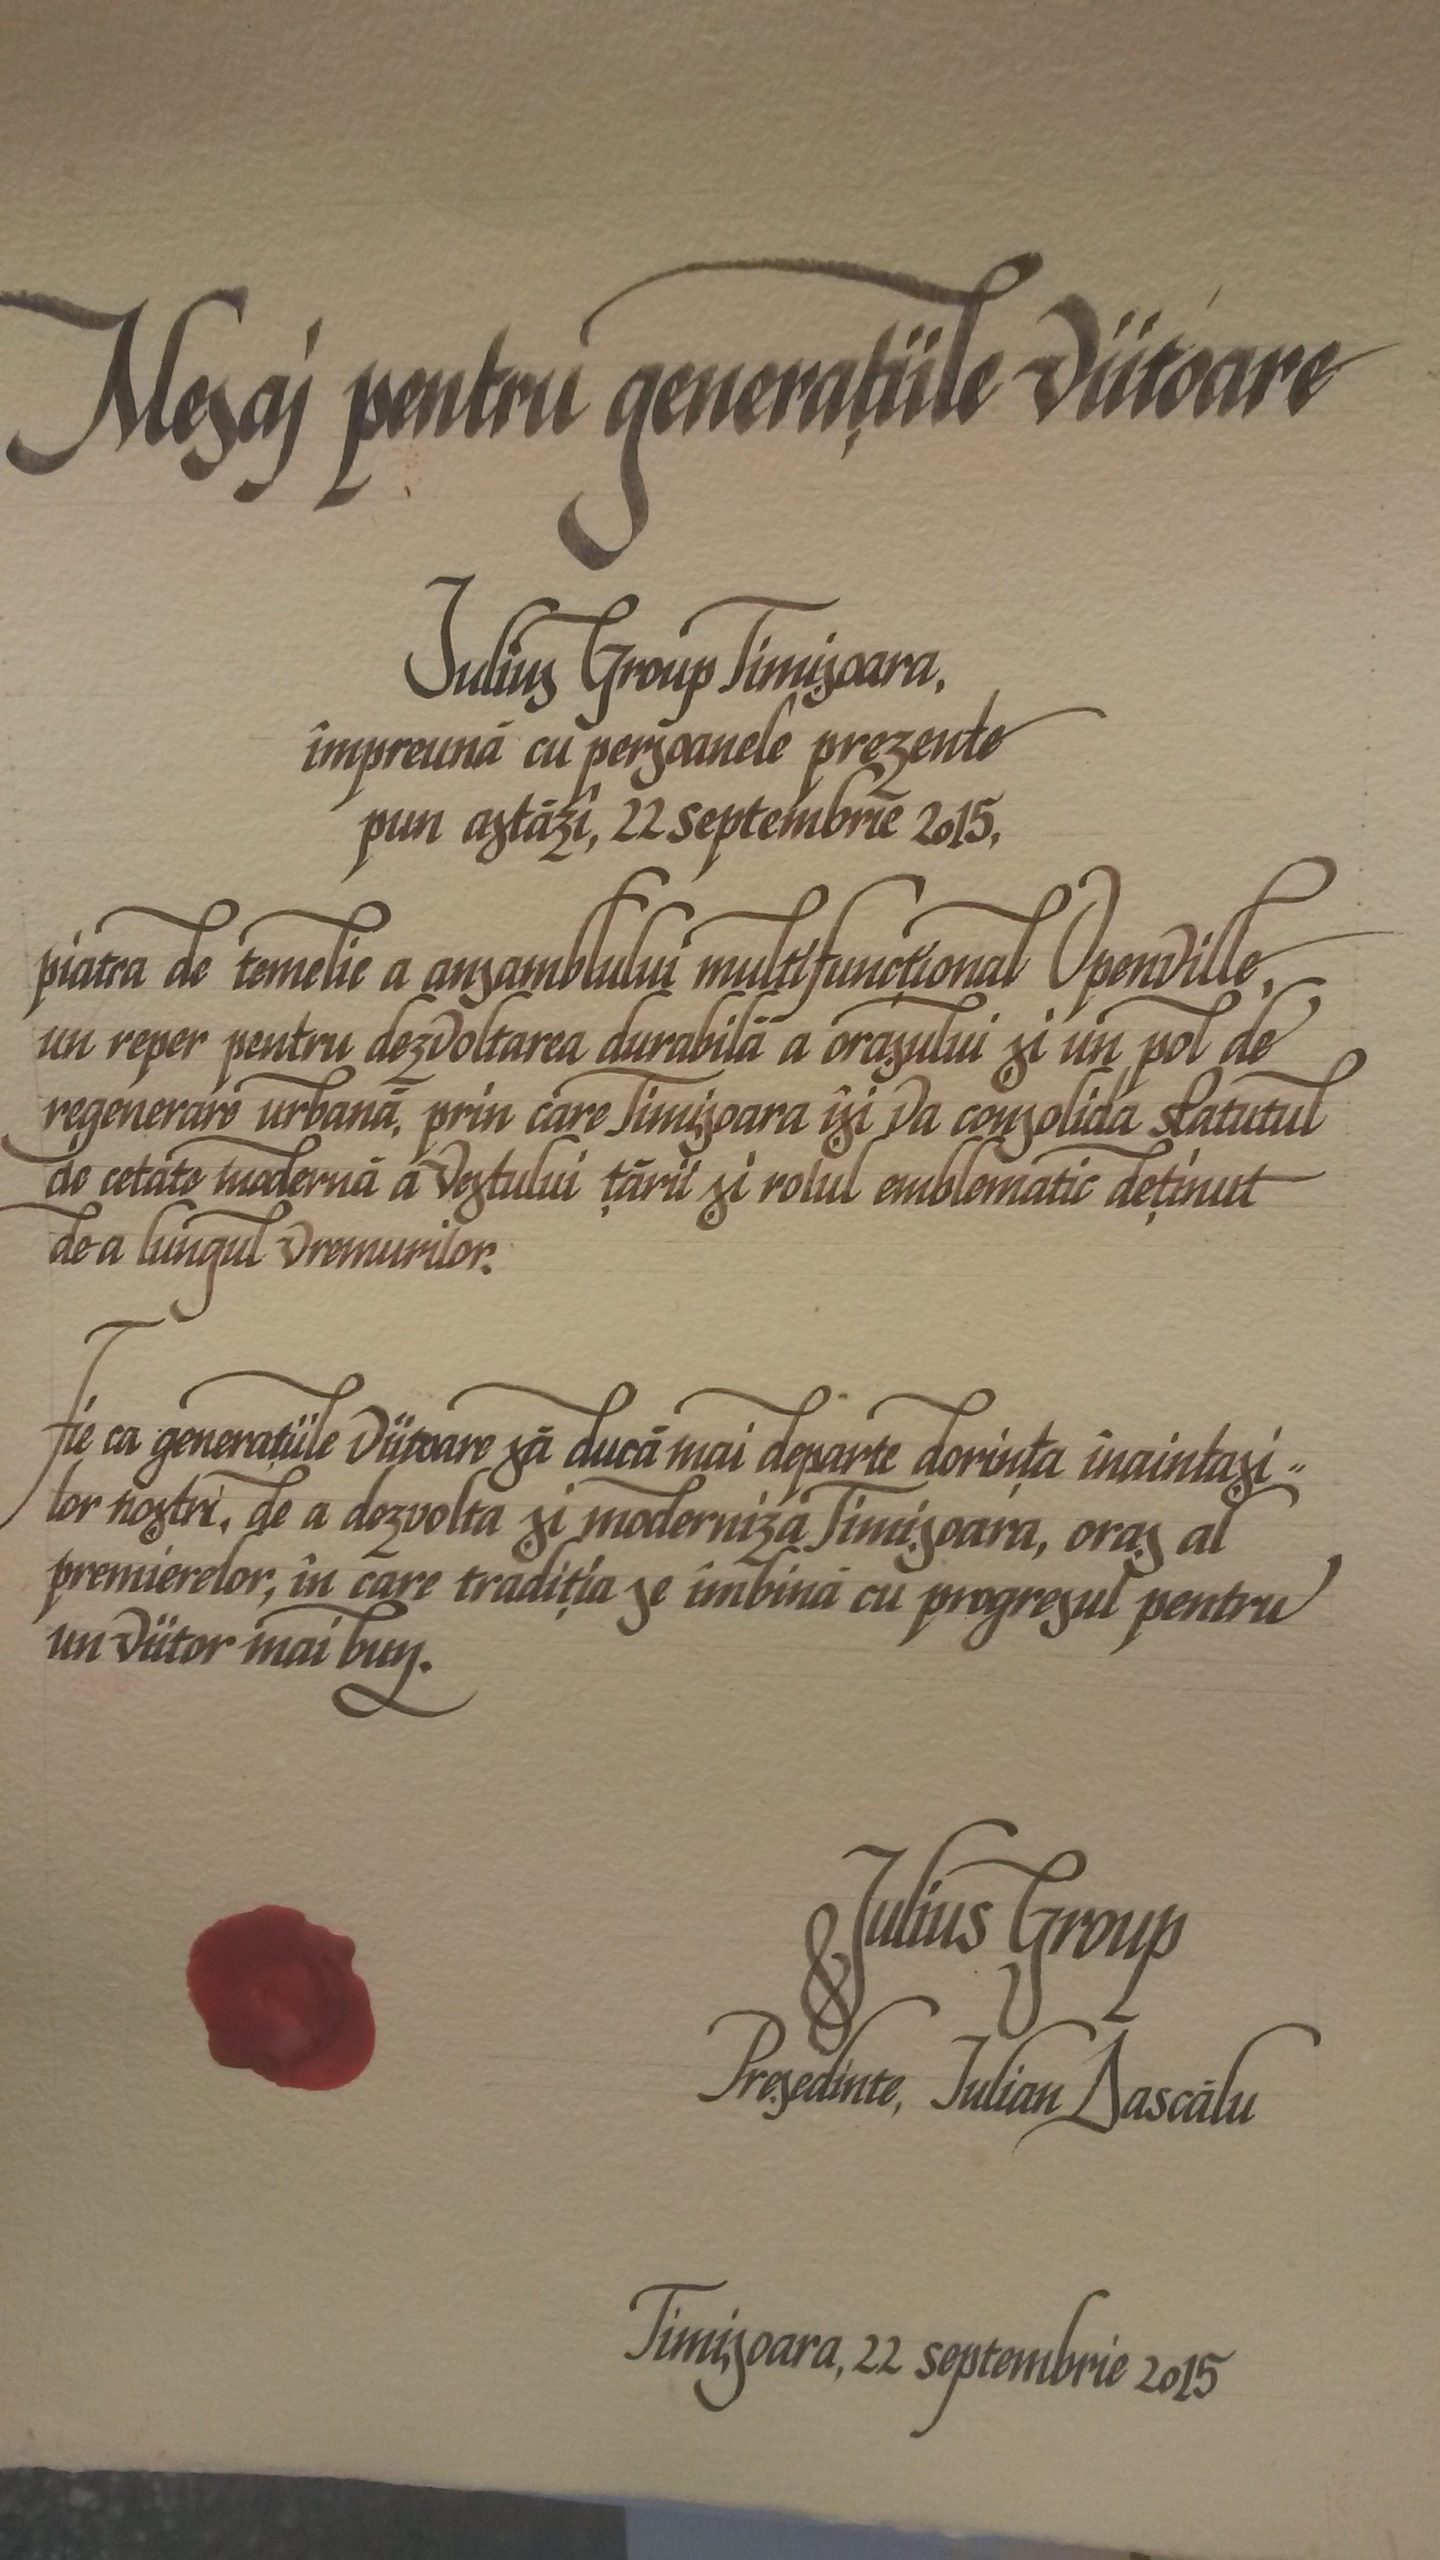 Mesaj pentru generațiile viitoare
Iulius Group Timișoara,
împreună cu persoanele prezente
pun astăzi, 22 septembrie 2015,
piatra de temelie a ansamblului multifuncțional Openville,
un reper pentru dezvoltarea durabilă a orașului și un pol de
regenerare urbană, prin care Timișoara își va consolida statutul
de cetate modernă a Vestului țării și rolul emblematic deținut
de-a lungul vremurilor.
Fie ca generațiile viitoare să ducă mai departe dorința înaintași-
lor noștri, de a dezvolta și moderniza Timișoara, oraș al
premierelor, în care tradiția se îmbină cu progresul pentru
un viitor mai bun.
Iulius Group
Președinte, Iulian Dascălu
Timișoara, 22 septembrie 2015